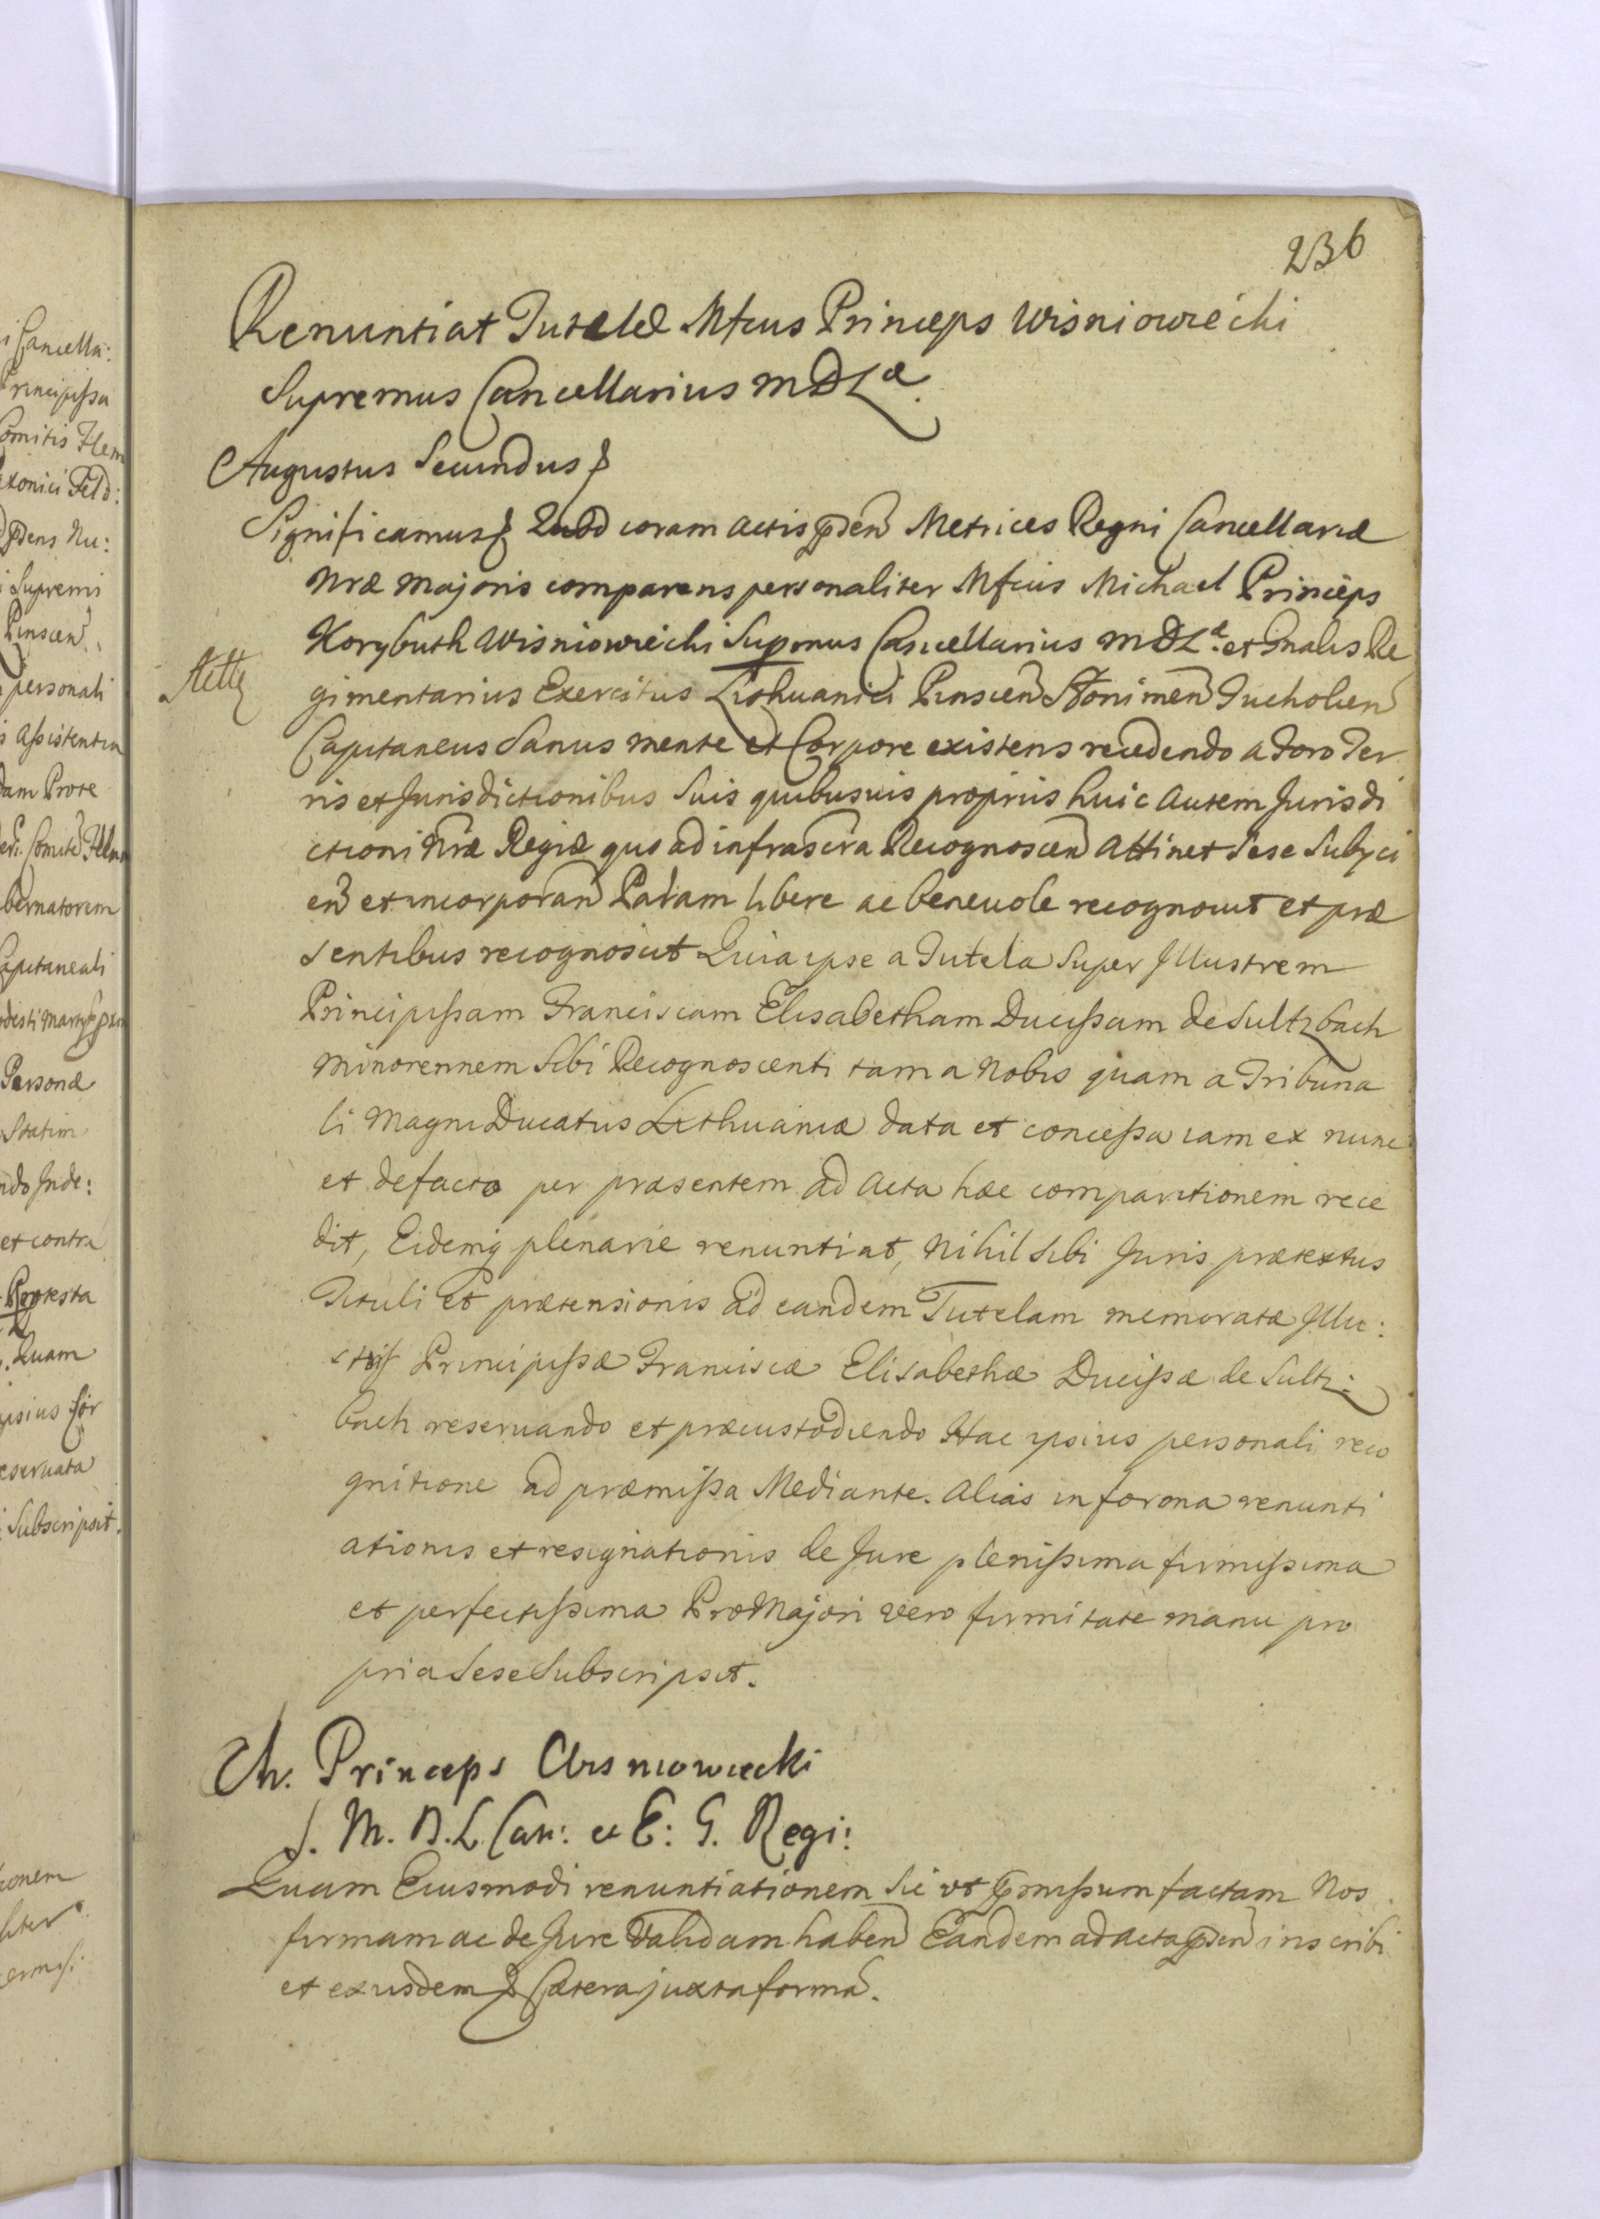 236
Renuntiat Tutelæ Mfcus Princeps Wisniowiecki
Supremus Cancellarius MDLæ.
Augustus Secundus
Significamus Quod coram actis pnden̄ Metrices Regni Cancellariæ
Nræ Majoris comparens personaliter Mfcus Michael Princeps
Korybuth Wisniowiecki Supmus Cancellarius MDLæ. et Gnalis Re
gimentarius Exercitus Lithuanici Pinscen̄ Słonimen̄ Tucholien̄
Capitaneus Sanus mente et Corpore existens recedendo a Foro Ter
ris et Jurisdictionibus Suis quibusuis proprijs huic autem Jurisdi
ctioni Nræ Regiæ quo ad infrascra Recognoscen̄ Attinet Sese Subyci
en̄ et incorporan̄ Palam libere ac beneuole recognouit et præ
sentibus recognoscit Quia ipse a Tutela Super Illustrem
Principissam Franciscam Elisabetham Ducissam de Sultzbach
Minorennem Sibi Recognoscenti tam a Nobis quam a Tribuna
li Magni Ducatus Lithuaniæ data et concessa iam ex nunc
et defacto per præsentem ad Acta hæc comparitionem rece
dit, Eidemq plenarie renuntiat, Nihil Sibi Juris prætextus
Tituli et prætensionis ad eandem Tutelam memoratæ Illu:
stris Principissæ Franciscæ Elisabethæ Ducissæ de Sultz:
bach reseruando et præcustodiendo Hac ipsius personali reco
gnitione ad præmissa Mediante. Alias in forma renunti
ationis et resignationis de Jure plenissima firmissima
et perfectissima Pro Majori vero firmitate manu pro
pria Sese Subscripsit.
Princeps Wisniowiecki
S. M. D. L. Can: et E: G. Regi:
Quam Eiusmodi renuntiationem Sic vt pmissum factam Nos
firmam ac de Jure Validam haben̄ Eandem ad acta pnden̄ inscribi
et exijsdem Cætera juxta formā.